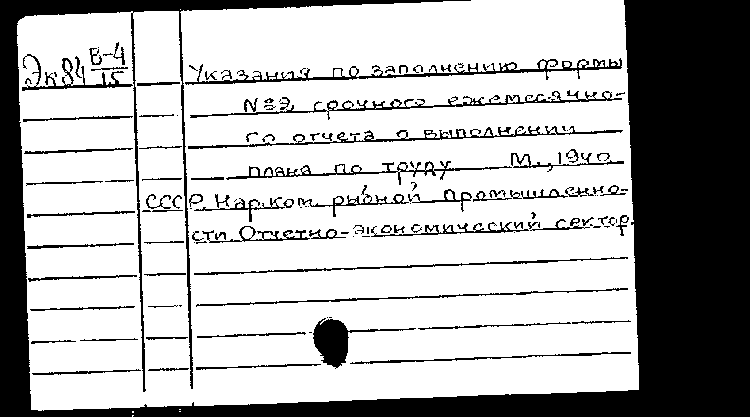 Эк84 В-4/15
Указания по заполнению формы
№2 срочного ежемесячно-
го отчета о выполнении
плана по труду М., 1940
СССР. Нар.ком. рыбной промышленно-
сти. Отчетно-экономический сектор.